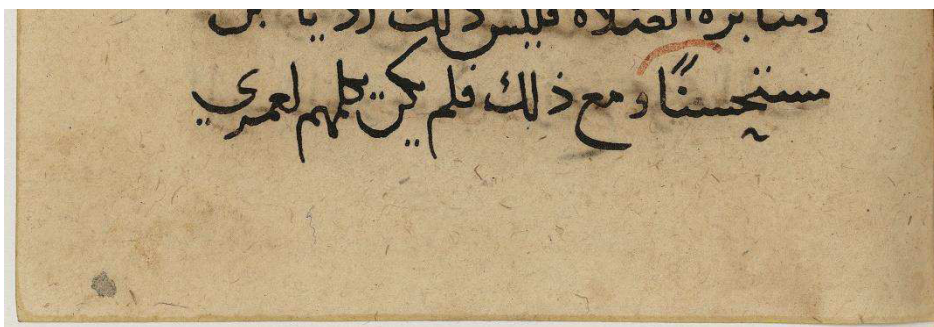 ومثابرة الصلاة فليس ذلك رديا بل
مستحسنًا ومع ذلك فلم يكن يكلمهم لعمري